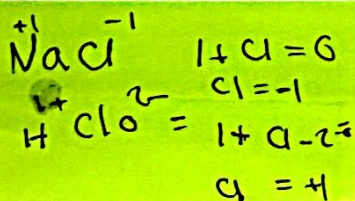 +1 -1
NaCl 1+Cl=0
Cl=-1
1+ 2-
H ClO = 1+Cl-2=
Cl = +1